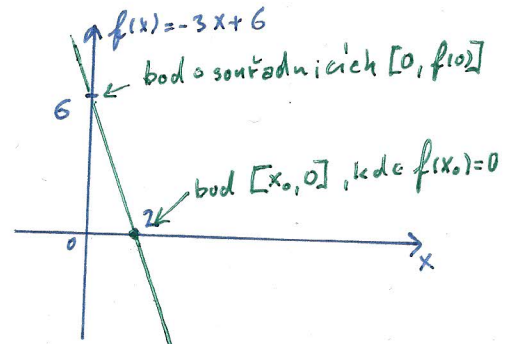 f(x)=-3x+6
bod o souřadnicích [0, f(0)]
6
bod [x₀,0], kde f(x₀)=0
2
0
x